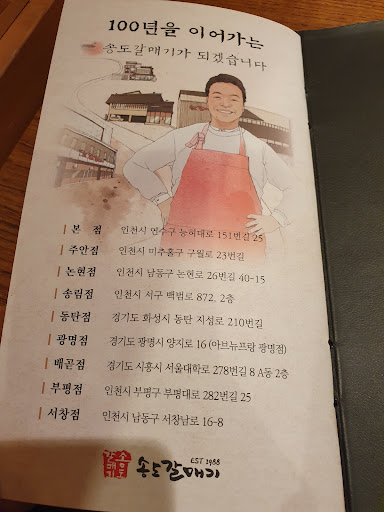 100년을 이어가는
송도갈매기가 되겠습니다
본 점 인천시 연수구 능허대로 151번길 25
주안점 인천시 미추홀구 구월로 23번길
논현점 인천시 남동구 논현로 26번길 40-15
송림점 인천시 서구 백범로 872, 2층
동탄점 경기도 화성시 동탄 지성로 210번길
광명점 경기도 광명시 양지로 16 (아브뉴프랑 광명점)
배곧점 경기도 시흥시 서울대학로 278번길 8 A동 2층
부평점 인천시 부평구 부평대로 282번길 25
서창점 인천시 남동구 서창남로 16-8
송도갈매기
EST 1988
송도갈매기